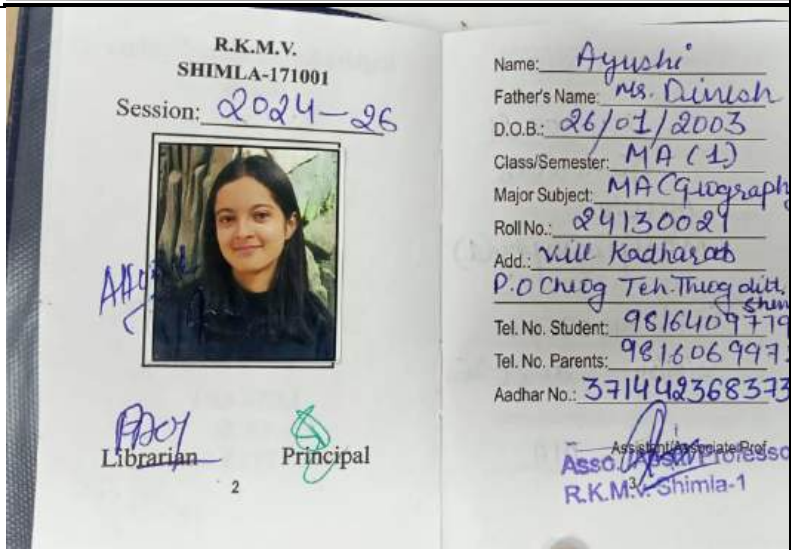 R.K.M.V.
SHIMLA-171001
Session: 2024-26
Librarian
Principal
2
Name: Ayushi
Father's Name: Mr. Dinesh
D.O.B.: 26/01/2003
Class/Semester: MA (1)
Major Subject: MA (Geography
Roll No.: 24130021
Add.: Vill Kadharab
P.O Cheog Teh. Theog distt.
Shim
Tel. No. Student: 9816409779
Tel. No. Parents: 981606997
Aadhar No.: 371442368373
Assistant/Associate Prof
Asso./Asstt. Professo
3
R.K.M.V. Shimla-1